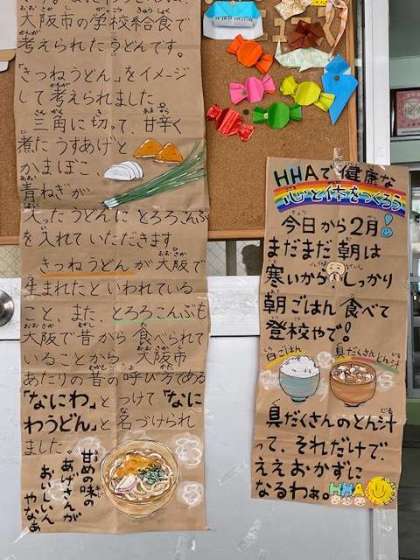 大阪市の学校給食で
考えられたうどんです。
「きつねうどん」をイメージ
して考えられました
三角に切って、甘辛く
煮たうすあげと
かまぼこ、
青ねぎが
入ったうどんにとろろこんぶ
を入れていただきます
きつねうどんが大阪で
生まれたといわれている
こと、また、とろろこんぶも
大阪で昔から食べられて
いることから、大阪市
あたりの昔の呼び方である
「なにわ」とつけて「なに
わうどん」と名づけられ
ました。
甘めの味の
あげさんが
おいしいん
やなぁ
HHAで健康な
心と体をつくろう
今日から2月!
まだまだ朝は
寒いからしっかり
朝ごはん食べて
登校やで!
白ごはん
具だくさんとん汁
具だくさんのとん汁
って、それだけで、
ええおかずに
なるわぁ。HHA